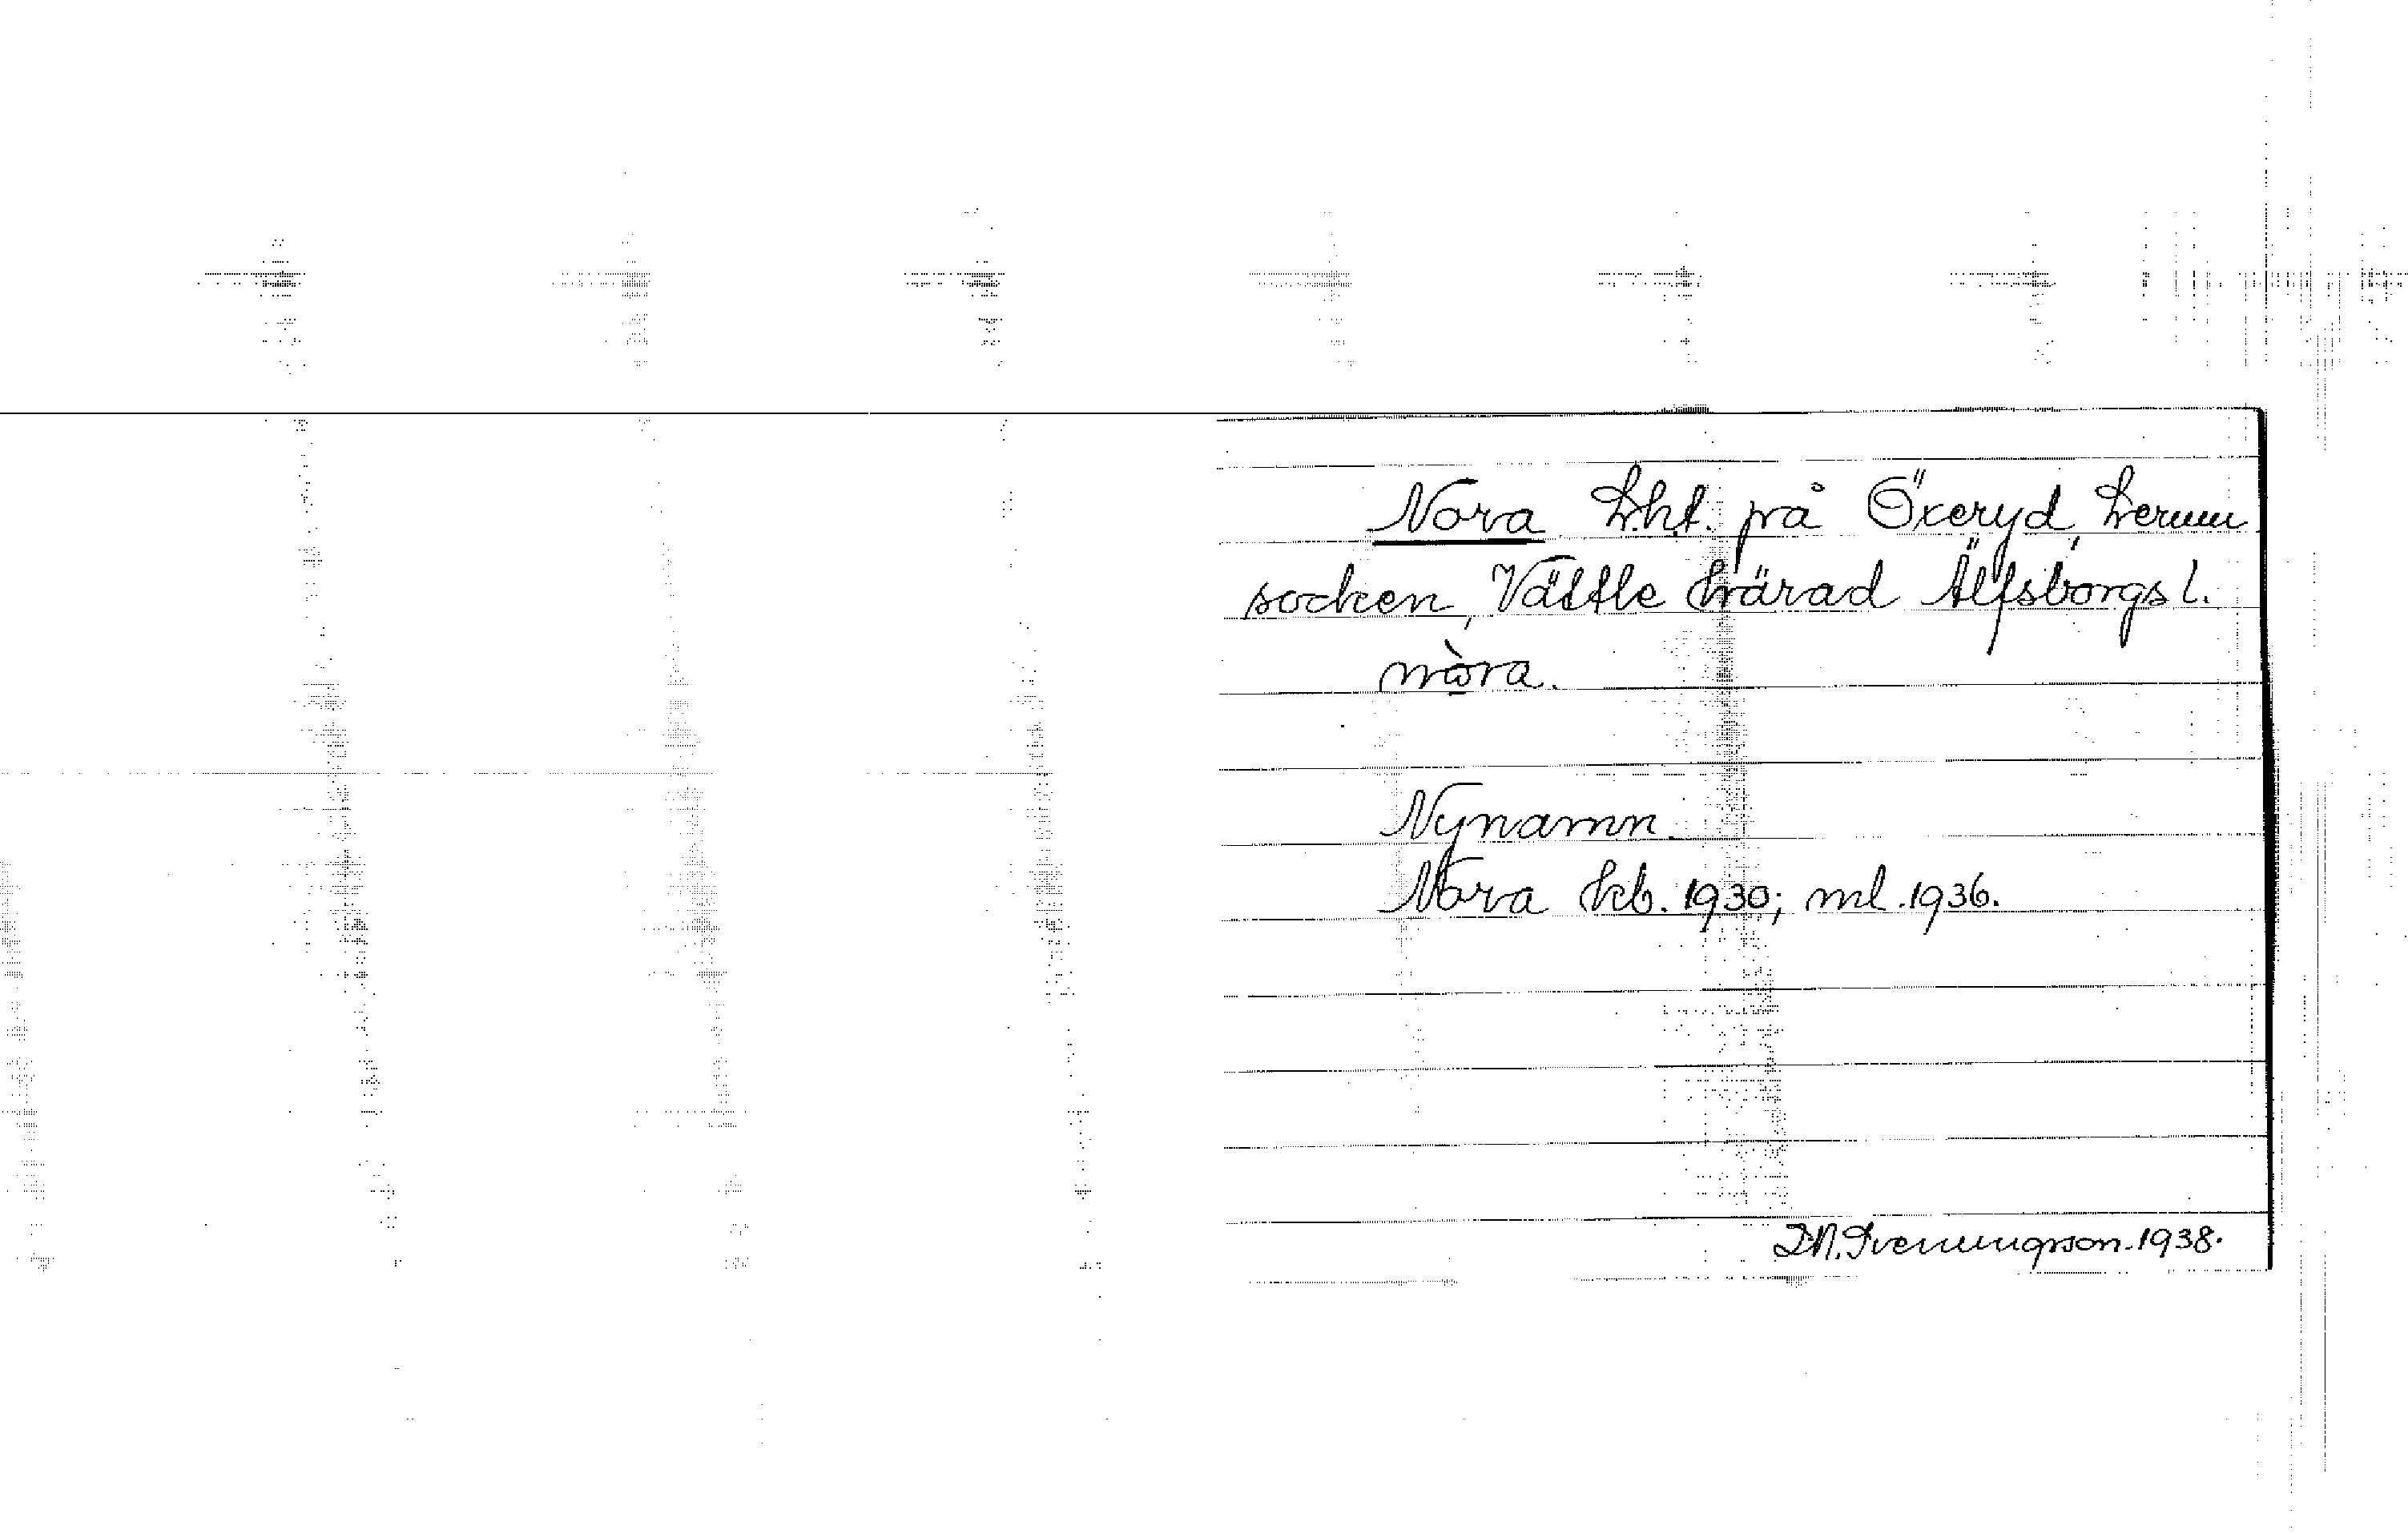 Nora L.ht. på Öxeryd, Lerum
socken, Vättle härad Älfsborgs l.
nòra.
Nynamn.
Nora kb. 1930; ml. 1936.
D.N. Svenningson. 1938.